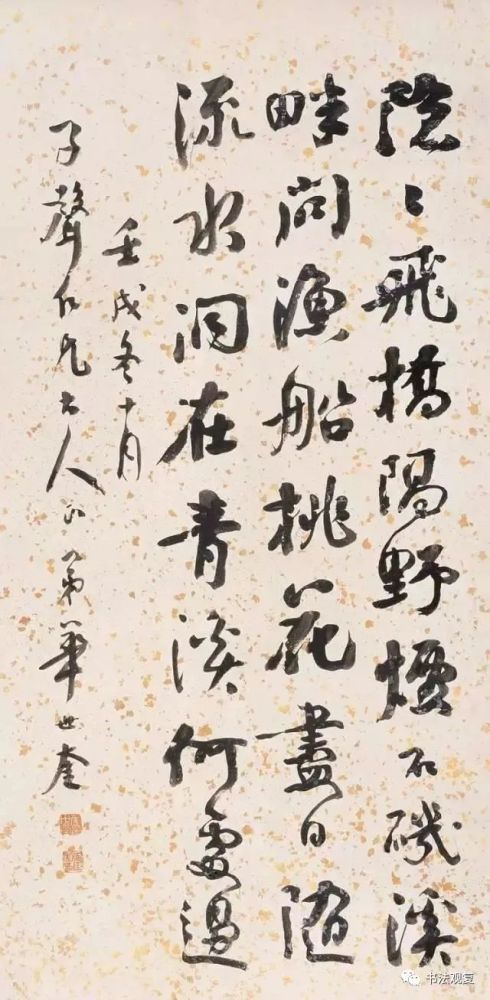 隱〻飛橋隔野煙石磯溪
畔問漁船桃花盡日隨
流水洞在青溪何處邊
壬戌冬十月
子聲仁兄大人正 弟華世奎
书法观复